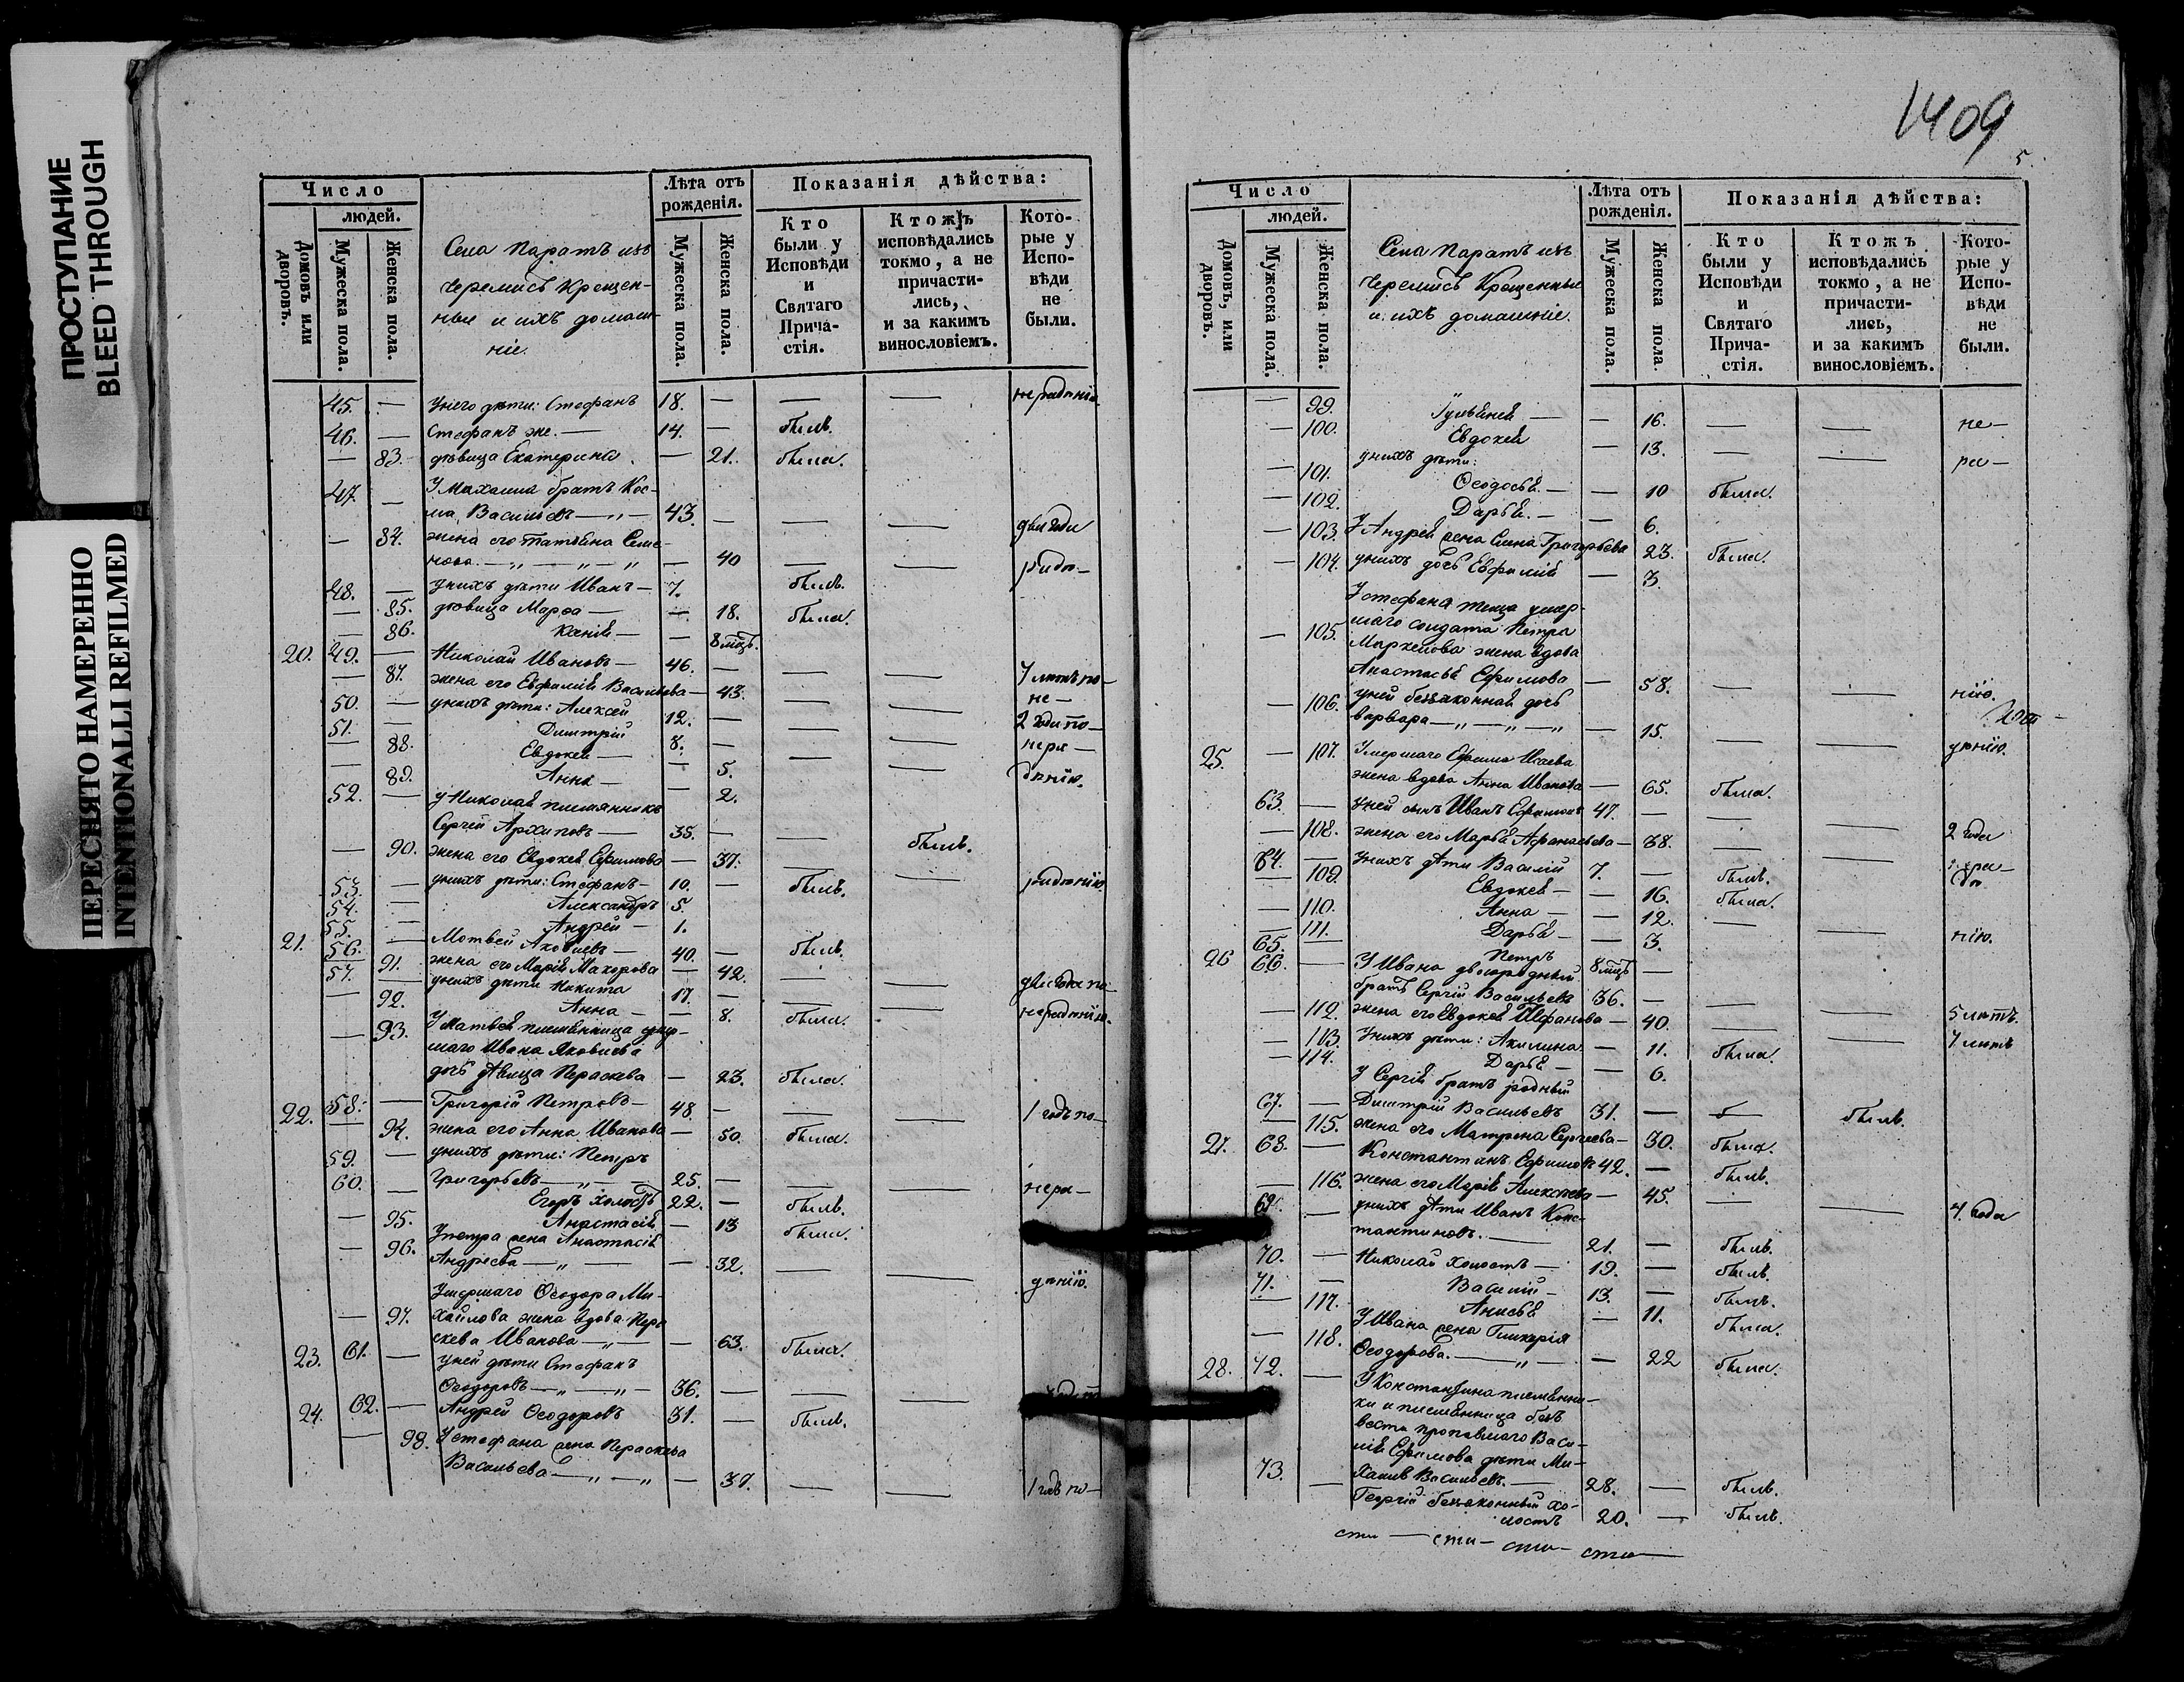 ПРОСТУПАНИЕ
BLEED THROUGH
ПЕРЕСНЯТО НАМЕРЕННО
INTENTIONALLI REFILMED
Число
людей.
Домовъ или дворовъ.
Мужеска пола.
Женска пола.
Села Паратъ изъ
Черемисъ Крещен-
ные и ихъ домаш-
ніе.
Лѣта отъ рожденія.
Мужеска пола.
Женска пола.
Показанія дѣйства:
Кто были у Исповѣди и Святаго Прича-стія.
Ктожъ исповѣдались токмо, а не причасти-лись, и за какимъ винословіемъ.
Кото-рые у Испо-вѣди не были.
45. — у него дѣти: Стефанъ 18. — — — нерадѣнію.
46. — Стефанъ же. — 14. — былъ.
— 83. дѣвица Екатерина — 21. была.
47. — У Михаила братъ Кос-
ма Васильевъ — „ — 43. — — —
— 84. жена его Татьяна Семе-
нова. — „ — „ — „ — 40 — —
48. — у нихъ дѣти Иванъ — 7. былъ.
— 85. дѣвица Марѳа — — 18. была.
— 86. Ксенія — — 8 мцъ.
20. 49. — Николай Ивановъ — 46. — — — 7 лѣтъ по —
— 87. жена его Евфимія Васильева — 43. — — не —
50. — у нихъ дѣти: Алексей 12. — — — 2 года по —
51. — Димитрій 8. — — нера —
— 88. Евдокея — — 5. — — дѣнію.
— 89. Анна — — 2.
52. — у Николая племянникъ
Сергей Архиповъ — 35. — — былъ.
— 90. жена его Евдокея Ефимова — 37. — — радѣнію
53. — у нихъ дѣти: Стефанъ — 10. — былъ.
54. — Александръ 5.
55. — Андрей — 1.
21. 56. — Мотвей Яковлевъ — 40. — былъ.
— 91. жена его Марія Макарова — 42. — —
57. — у нихъ дѣти Никита 17. — — — нерадѣнію.
— 92. Анна — — 8. была.
— 93. У Матвея племянница умер-
шаго Ивана Яковлева
дочь дѣвица Параскева — 23. была.
22. 58. — Григорій Петровъ — 48. — — — 1 годъ по —
— 94. жена его Анна Иванова — 50. была.
59. — у нихъ дѣти: Петръ
Григорьевъ — „ — 25. — — — нера —
60. — Егоръ холостъ 22. — былъ.
— 95. Анастасія — 13 была.
— 96. У Петра жена Анастасія
Андреева — „ — — 32. — — дѣнію.
Умершаго Ѳеодора Ми-
— 97. хайлова жена вдова Пера-
скева Иванова — „ — — 63. была.
23. 61. — у ней дѣти Стефанъ
Ѳеодоровъ — „ — „ — 36. — — —
24. 62. — Андрей Ѳеодоровъ 31. — былъ.
— 98. У Стефана жена Пераскева
Васильева — „ — „ — 37. — — 1 годъ по —
1409
5.
Число
людей.
Домовъ, или дворовъ.
Мужеска пола.
Женска пола.
Села Паратъ изъ
Черемисъ Крещенные
и ихъ домашніе.
Лѣта отъ рожденія.
Мужеска пола.
Женска пола.
Показанія дѣйства:
Кто были у Исповѣди и Святаго Прича-стія.
Ктожъ исповѣдались токмо, а не причасти-лись, и за какимъ винословіемъ.
Кото-рые у Испо-вѣди не были.
— 99. — 16. — — не —
— 100. Евдокея — 13. — — ра —
у нихъ дѣти:
— 101. Ѳеодосья. — — 10 была.
— 102. Дарья. — — 6.
— 103. У Андрея жена Елена Григорьева 23. была.
— 104. у нихъ дочь Евфимія — 3.
У Стефана теща умер-
шаго солдата Петра
— 105. жена вдова
Анастасья Ефимова — 58. — — нію.
— 106. у ней беззаконная дочь
Варвара — „ — „ — „ — 15. — — дѣнію.
25. — 107. Умершаго Ефима Исаева
жена вдова Анна Иванова — 65. была.
63. — у ней сынъ Иванъ Ефимовъ 47. — — — 2 года
— 108. жена его Марья Афанасьева — 38. — —
64. — у нихъ дѣти Василій 7. — былъ.
— 109. Евдокея — — 16. была.
— 110. Анна — — 12. — — нію.
— 111. Дарья — — 3.
65. — Петръ 8 мцъ —
26 66. — У Ивана двоюродный
братъ Сергій Васильевъ 36. — — — 5 лѣтъ.
— 112. жена его Евдокея — 40. — — 7 лѣтъ
— 113. у нихъ дѣти: Акилина — 11. была.
— 114. Дарья — — 6.
У Сергія братъ родный
67. — Димитрій Васильевъ 31. — — былъ.
— 115. жена его Матрена Сергеева — 30. была.
27. 68. — Константинъ Ефимовъ 42. — былъ.
— 116. жена его Марія Алексеева — 45. — — 4. года
69. — у нихъ дѣти Иванъ Конс-
тантиновъ. — 21. — былъ.
70. — Николай холостъ — 19. — былъ.
71. — Василій — 13. — былъ.
— 117. Анисья — 11. была.
У Ивана жена Гликерія
— 118. Ѳеодорова. — „ — — 22 была.
28. 72. — У Константина племянни-
ки и племянница безъ
вести пропавшаго Васи-
лія Ефимова дѣти Ми-
хаилъ Васильевъ. — 28. — былъ.
73. — Георгій беззаконный хо-
лостъ 20. — былъ.
сти — сти — сти — сти —